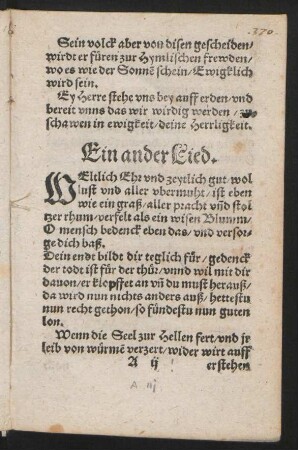 370
Sein volck aber von disen gescheiden/
wirdt er füren zur Hymlischen frewden/
wo es wie der Sonnē schein/Ewigklich
wird sein.
Ey Herre stehe vns bey auff erden/vnd
bereit vnns das wir wirdig werden/zů
schawen in ewigkeit/deine Herrligkeit.
Ein ander Lied.
WEltlich Ehr vnd zeytlich gut/wol
lust vnd aller vbermuht/ist eben
wie ein graß/aller pracht vnd stol
tzer rhum/verfelt als ein wisen Blumm/
O mensch bedenck eben das/vnd versor-
ge dich baß.
Dein endt bildt dir teglich für/gedenck
der todt ist für der thür/vnnd wil mit dir
dauon/er klopffet an vn̄ du must herauß/
da wird nun nichts anders auß/hettestu
nun recht gethon/so fündestu nun guten
lon.
Wenn die Seel zur Hellen fert/vnd jr
leib von würmē verzert/wider wirt auff
A ij erstehen
A iij